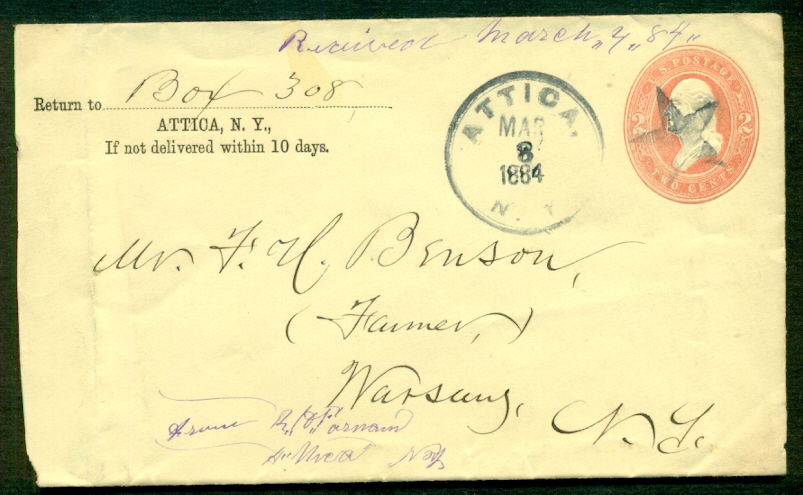 Received March „ 7 „ 84 „
Return to Box 308,
ATTICA, N. Y.,
If not delivered within 10 days.
ATTICA.
MAR
8
1884
N. Y.
U.S. POSTAGE
2 2
TWO CENTS
Mr. F. H. Benson,
(Farmer,)
Warsaw,
N. Y.
from
Attica NY